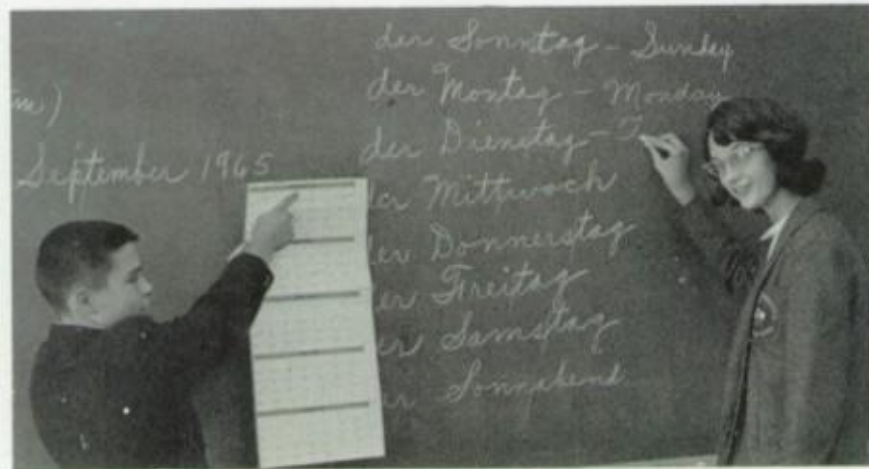 September 1965
der Sonntag - Sunday
der Montag - Monday
der Dienstag - T
der Mittwoch
der Donnerstag
der Freitag
er Samstag
Sonnabend